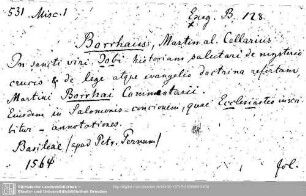 531. Misc. 1
Exeg. B. 128.
Borrhauss, Martin al. Cellarius
In sancti viri Jobi historiam salutari de mysterio
crucis & de lege atque evangelio doctrina refertam
Martini Borrhai Commentarii.
Eiusdem in Salomonis concionem, quae Ecclesiastes inscri-
bitur – annotationes.
Basileae (apud Petr. Pernam)
1564
fol.